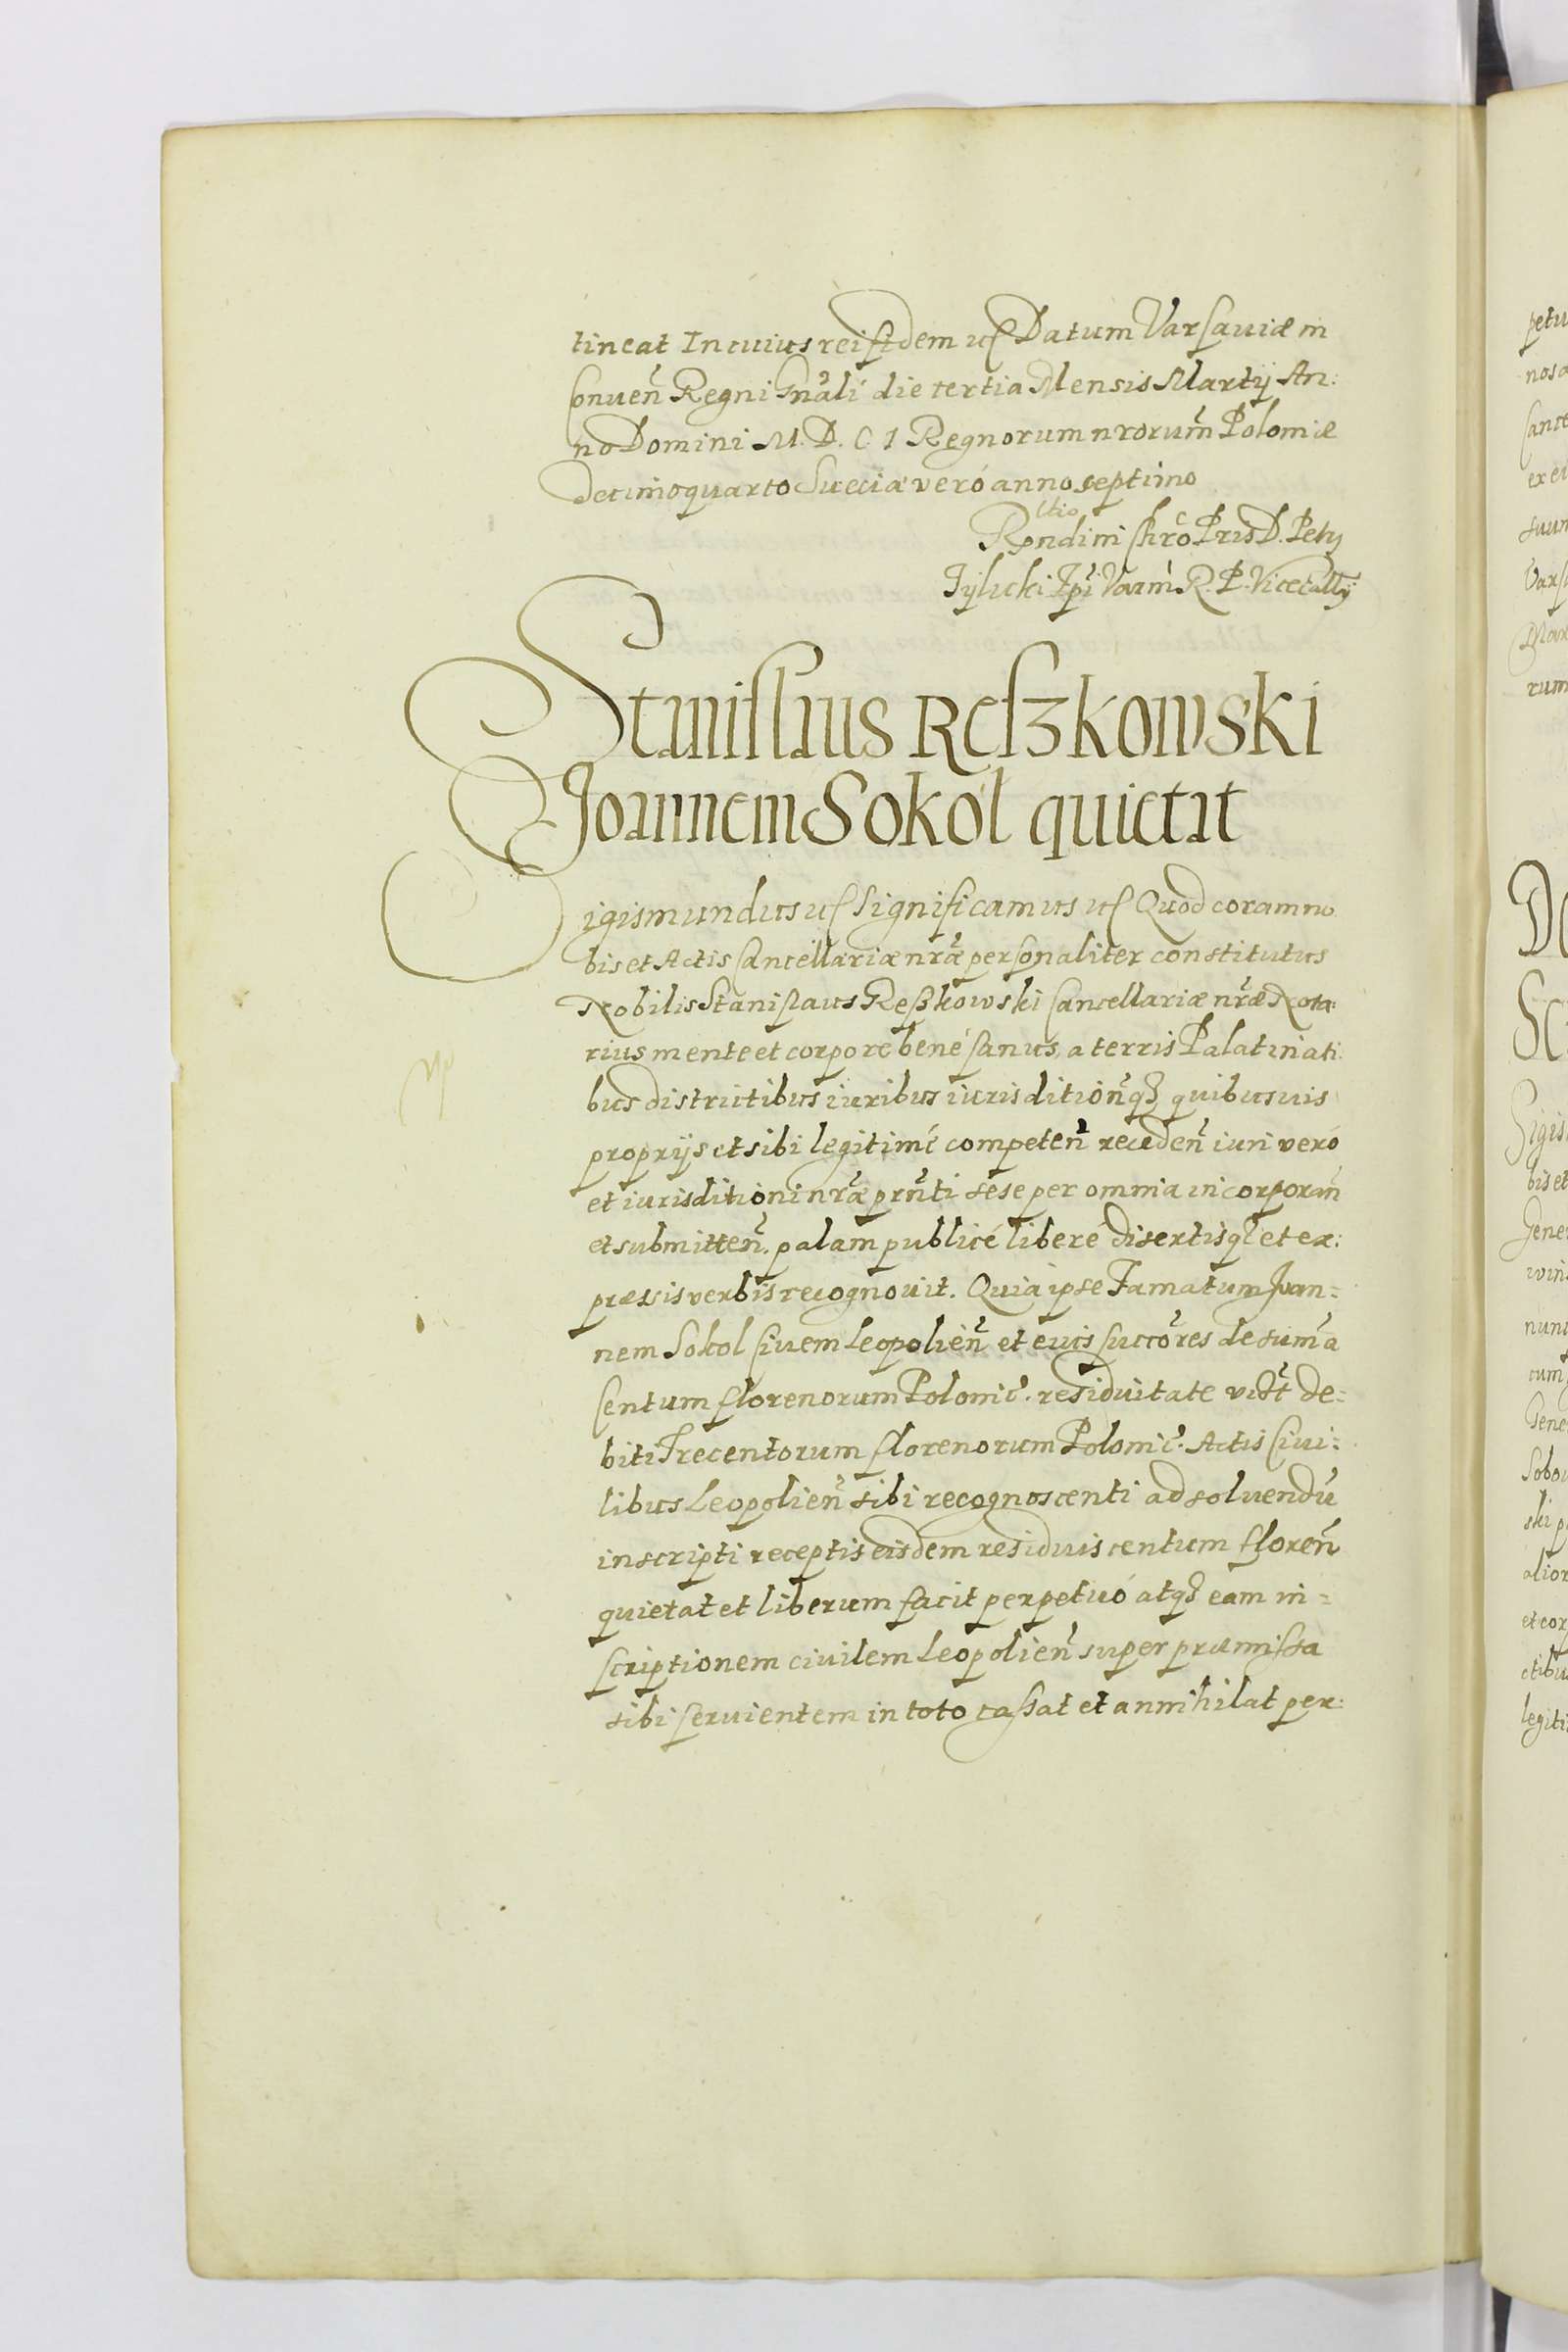 tineat In cuius rei fidem etc Datum Varsaviæ in
Conven̄ Regni Gn̄ali die tertia Mensis Martij An:
no Domini M.D.C1 Regnorum nrorum̄ Poloniæ
decimoquarto Sueciæ veró anno septimo
R͞ndi in Chro Pris D. Petri
Tylicki Ep̄i Varm̄ R.P. Vicecallrij
Stanislaus Reszkowski
Joannem Sokol quietat
Sigismundus etc Significamus etc Quod coram no
bis et Actis Cancellariæ nrǣ personaliter constitutus
Nobilis Stanislaus Reszkowski Cancellariæ nrǣ Nota:
rius mente et corpore bené sanus, a terris Palatinati:
bus districtibus iuribus iurisdition̄q3 quibusuis
proprijs et sibi legitimé competen̄ receden̄ iuri veró
et iurisditioni nrǣ prn̄ti sese per omnia incorporan̄
et submitten̄. palam publicé liberé disertisq3 et ex:
præssis verbis recognouit. Quia ipse Famatum Joan=
nem Sokol Ciuem Leopolien̄ et eius succ̄ores de sum̄a
Centum florenorum Polonic̄. residuitate vid3t de=
biti Trecentorum florenorum Polonic̄. Actis Ciui=
libus Leopolien̄ sibi recognoscenti ad soluendū
inscripti receptis eisdem residuis centum floren̄
quietat et liberum facit perpetuó atq3 eam in=
scriptionem ciuilem Leopolien̄ super præmissa
sibi seruientem in toto cassat et annihilat per: